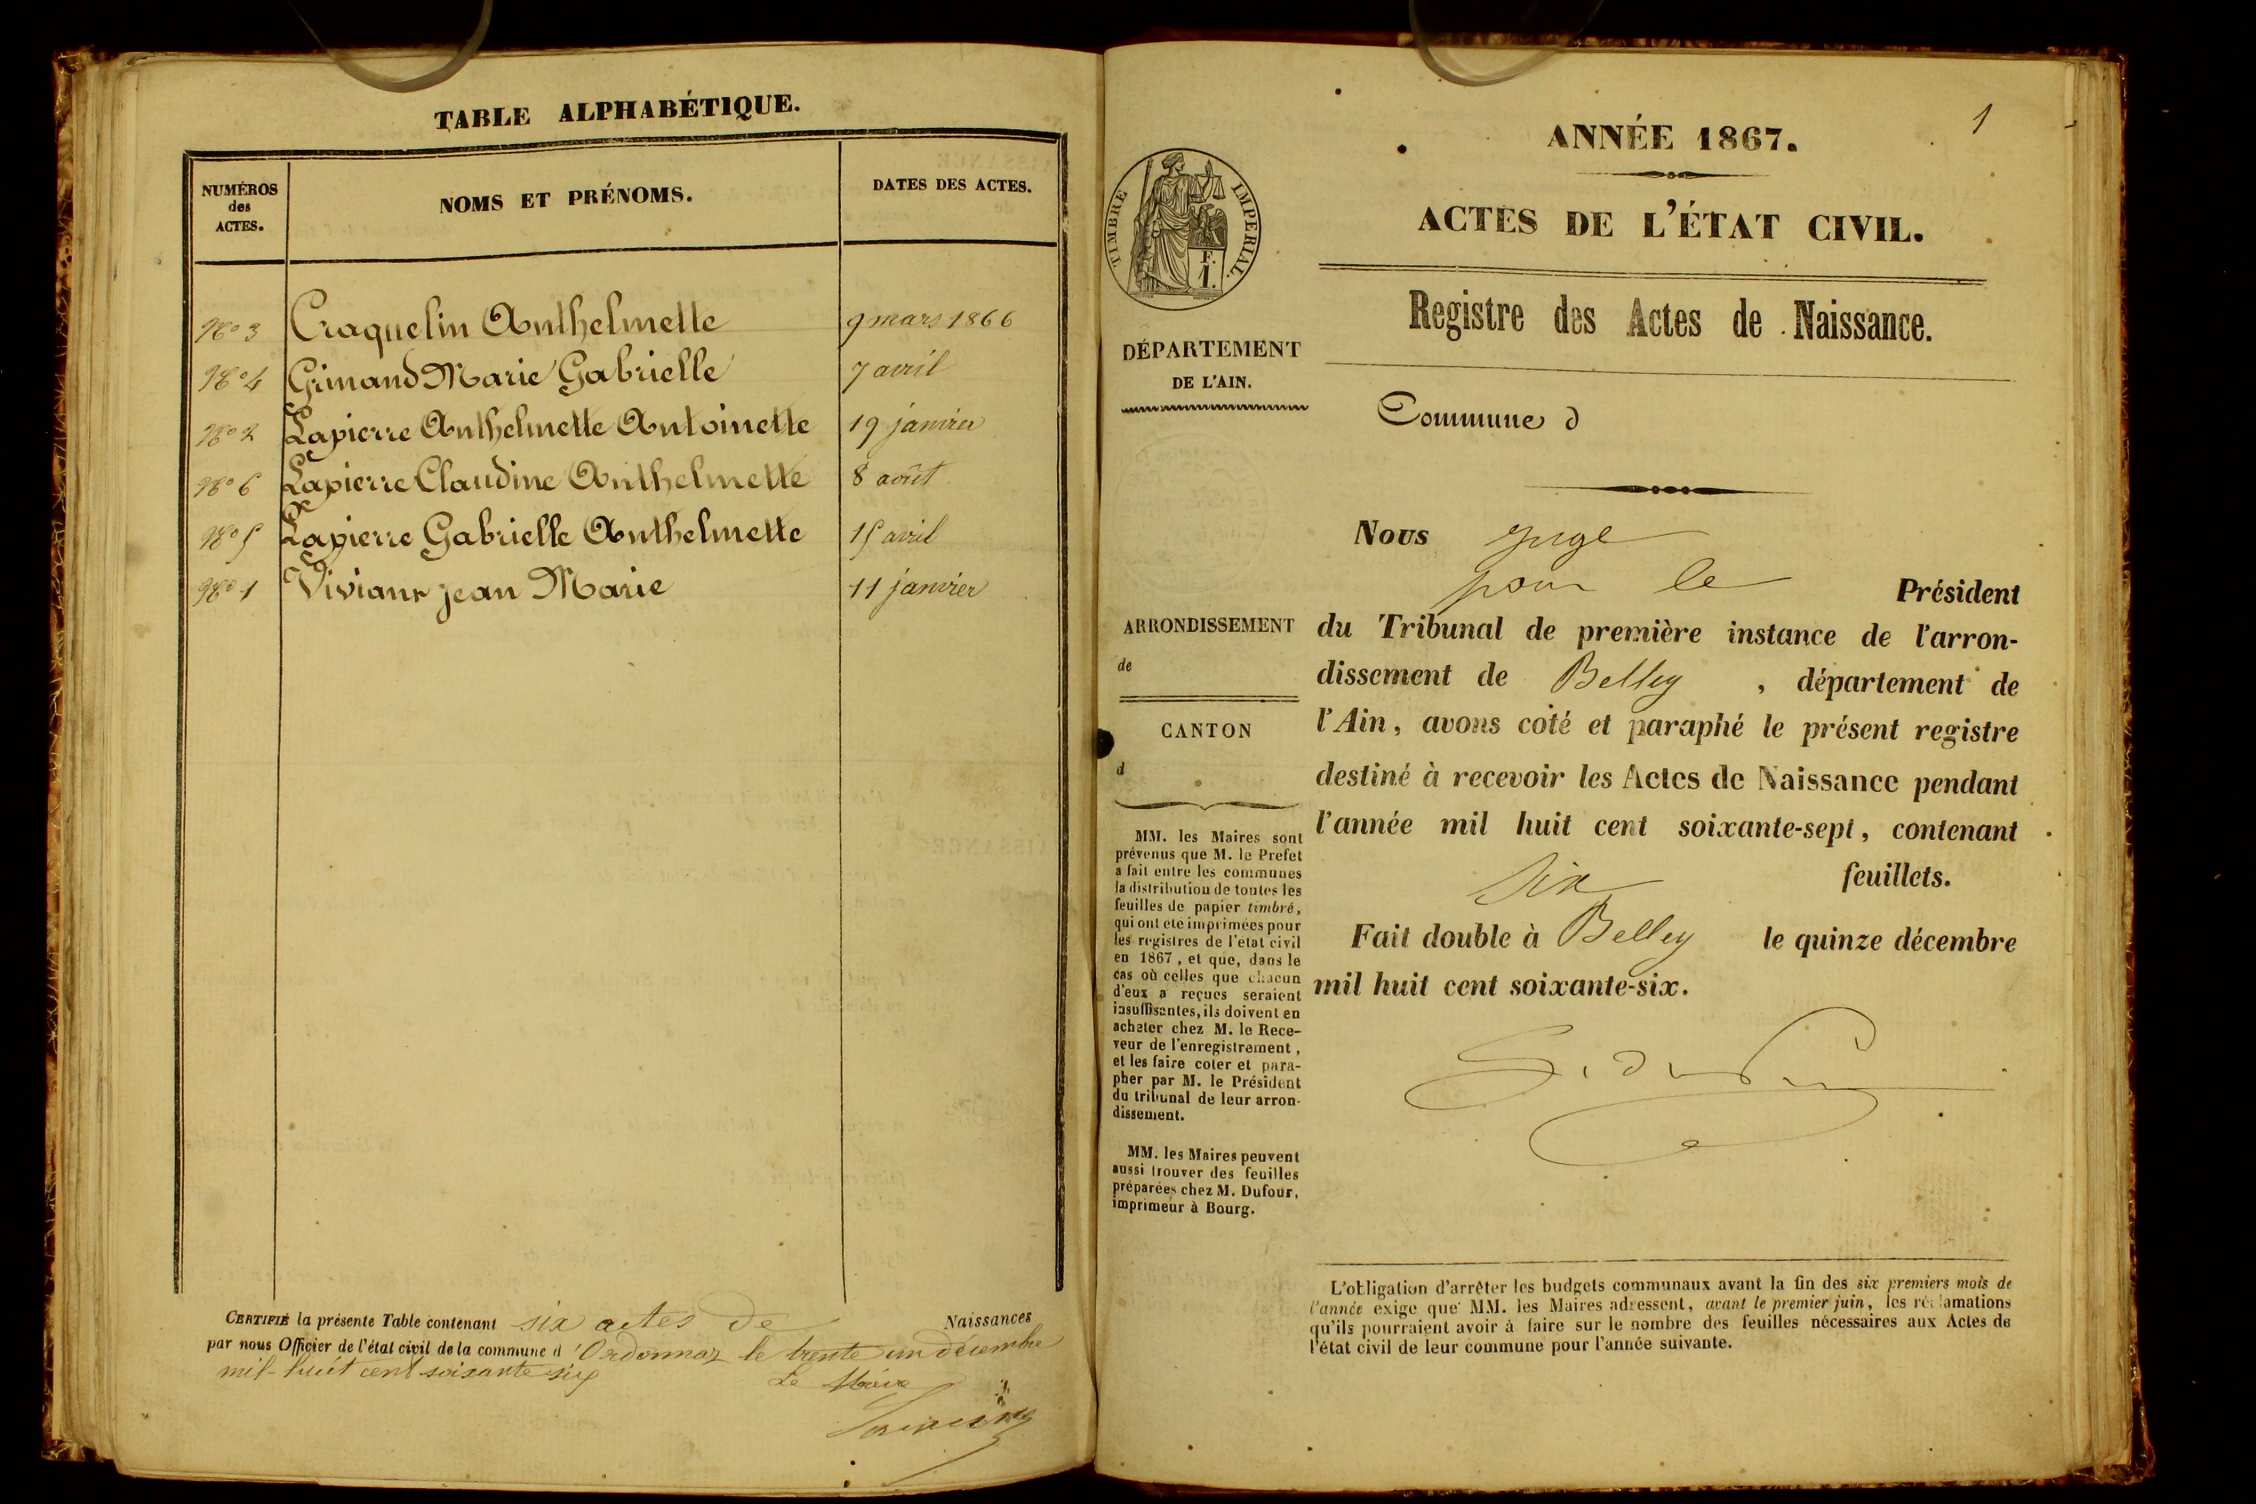 TABLE ALPHABÉTIQUE.
NUMÉROS
des
ACTES.
NOMS ET PRÉNOMS.
DATES DES ACTES.
No 3 Craquelin Anthelmette 9 mars 1866
No 4 Grinand Marie Gabrielle 7 avril
No 2 Lapierre Anthelmette Antoinette 19 janvier
No 6 Lapierre Claudine Anthelmette 8 août
No 5 Lapierre Gabrielle Anthelmette 15 avril
No 1 Jean Marie 11 janvier
CERTIFIÉ la présente Table contenant six actes de Naissances
par nous Officier de l'état civil de la commune d'Ordonnaz le trente un décembre
mil-huit cent soixante six
Le Maire
1
ANNÉE 1867.
ACTES DE L'ÉTAT CIVIL.
Registre des Actes de Naissance.
TIMBRE IMPÉRIAL.
F.
1.
DÉPARTEMENT
DE L'AIN.
Commune d
Nous juge
pour le Président
du Tribunal de première instance de l'arron-
dissement de Belley, département de
l'Ain, avons coté et paraphé le présent registre
destiné à recevoir les Actes de Naissance pendant
l'année mil huit cent soixante-sept, contenant
six feuillets.
Fait double à Belley le quinze décembre
mil huit cent soixante-six.
ARRONDISSEMENT
de
CANTON
d
MM. les Maires sont
prévenus que M. le Prefet
a fait entre les communes
la distribution de toutes les
feuilles de papier timbré,
qui ont été imprimées pour
les registres de l'état civil
en 1867, et que, dans le
cas où celles que chacun
d'eux a reçues seraient
insuffisantes, ils doivent en
acheter chez M. le Rece-
veur de l'enregistrement,
et les faire coter et para-
pher par M. le Président
du tribunal de leur arron-
dissement.
MM. les Maires peuvent
aussi trouver des feuilles
préparées chez M. Dufour,
imprimeur à Bourg.
L'obligation d'arrêter les budgets communaux avant la fin des six premiers mois de
l'année exige que MM. les Maires adressent, avant le premier juin, les réclamations
qu'ils pourraient avoir à faire sur le nombre des feuilles nécessaires aux Actes de
l'état civil de leur commune pour l'année suivante.